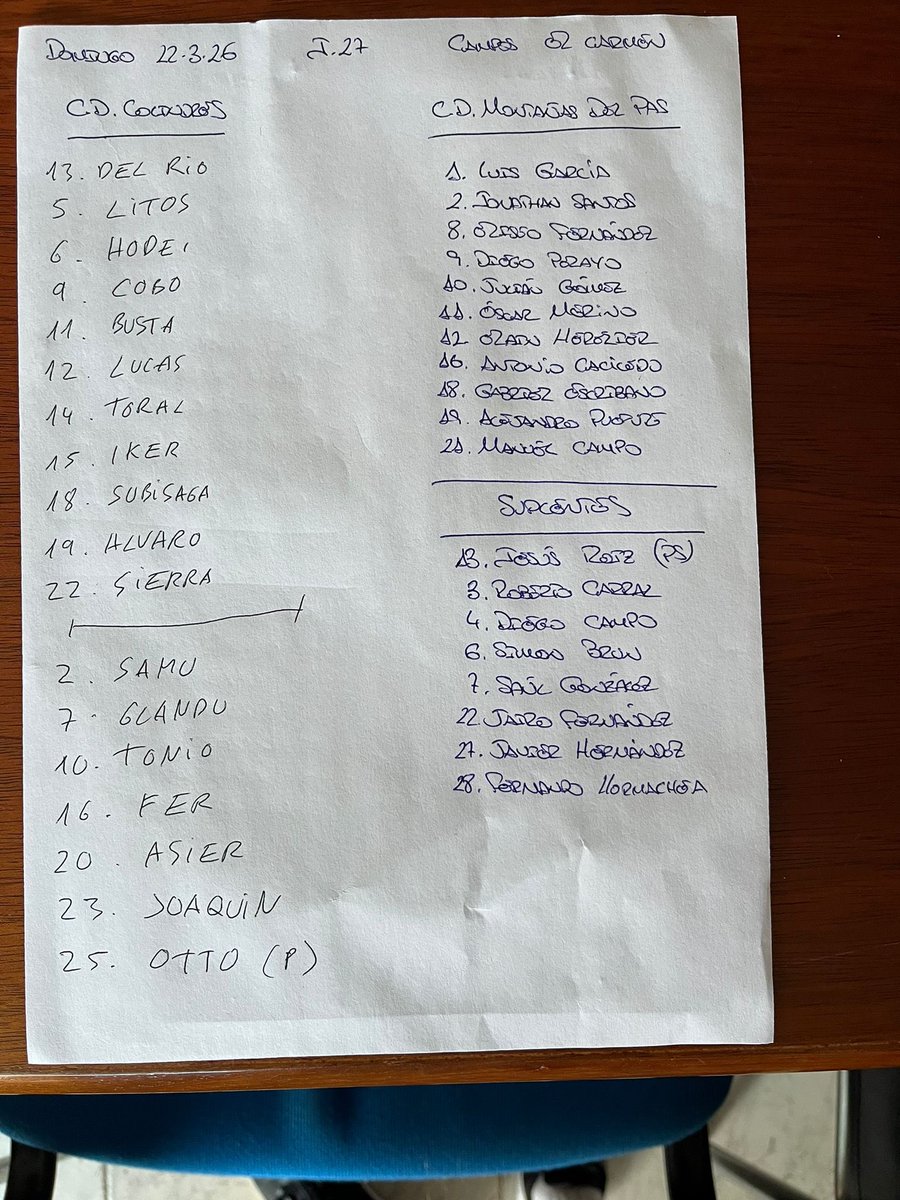 DOMINGO 22.3.26 J.27 CAMPOS EL CARMEN
C.D. COLINDRES
13. DEL RIO
5. LITOS
6. HODEI
9. COBO
11. BUSTA
12. LUCAS
14. TORAL
15. IKER
18. SUBISAGA
19. ALVARO
22. SIERRA
2. SAMU
7. GLANDU
10. TONIO
16. FER
20. ASIER
23. JOAQUIN
25. OTTO (P)
C.D. MONTAÑAS DEL PAS
1. LUIS GARCÍA
2. JONATHAN SANTOS
8. ELISEO FERNÁNDEZ
9. DIEGO PELAYO
10. JULIÁN GÓMEZ
11. ÓSCAR MERINO
12 HERERDER
16. ANTONIO CACICEDO
18. GABRIEL ESCRIBANO
19. ALEJANDRO PUENTE
21. MANUEL CAMPO
SUPLENTES
13. JESÚS RUIZ (PS)
3. ROBERTO CARRAL
4. DIEGO CAMPO
6. SIMON BRUN
7. SAÚL GONZÁLEZ
22. JAIRO FERNÁNDEZ
27. JAVIER HERNÁNDEZ
28. FERNANDO HORMAECHEA